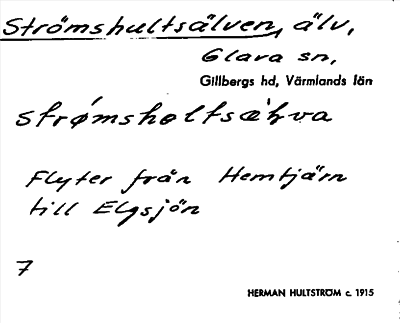 Strömshultsälven, älv,
Glava sn,
Gillbergs hd, Värmlands län
strǿmshɵltsæ̀ɽva
Flyter från Hemtjärn
till Elgsjön
7
HERMAN HULTSTRÖM c. 1915